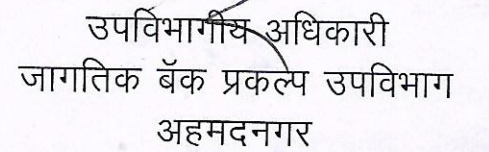 उपविभागीय अधिकारी
जागतिक बॅक प्रकल्प उपविभाग
अहमदनगर